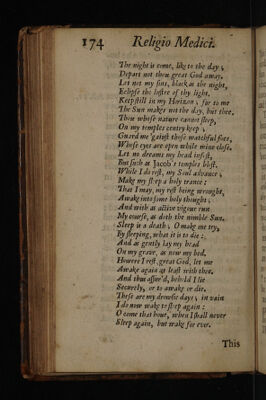 174 Religio Medici.
The night is come, like to the day;
Depart not thou great God away.
Let not my sins, black as the night,
Eclipse the lustre of thy light.
Keep still in my Horizon; for to me
The Sun makes not the day, but thee.
Thou whose nature cannot sleep,
On my temples centry keep;
Guard me 'gainst those watchful foes,
Whose eyes are open while mine close.
Let no dreams my head infest,
But such as Jacob's temples blest.
While I do rest, my Soul advance;
Make my sleep a holy trance:
That I may, my rest being wrought,
Awake into some holy thought;
And with as active vigour run
My course, as doth the nimble Sun.
Sleep is a death; O make me try,
By sleeping, what it is to die:
And as gently lay my head
On my grave, as now my bed.
Howere I rest, great God, let me
Awake again at least with thee.
And thus assur'd, behold I lie
Securely, or to awake or die.
These are my drowsie days; in vain
I do now wake to sleep again:
O come that hour, when I shall never
Sleep again, but wake for ever.
This